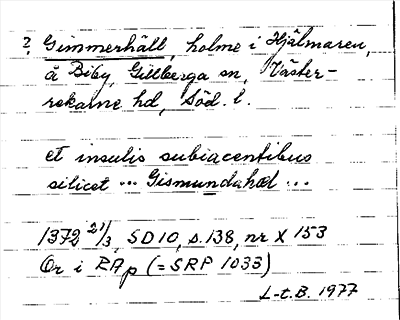 ? Gimmerhäll, holme i Hjälmaren,
å Biby, Gillberga sn, Väster-
rekarne hd, Söd. l.
et insulis subiacentibus
silicet ... Gismundahæl ...
1372 21/3, SD10, s.138, nr X 153
Or i RAp (= SRP 1033)
L-t.B. 1977